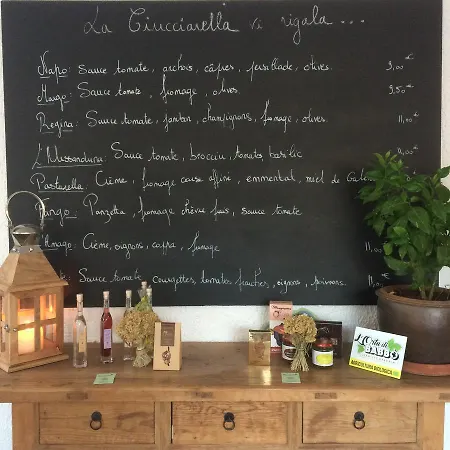 La Ciucciarella vi rigala ...
Napo: Sauce tomate, anchois, câpres, persillade, olives. 9,00€
Margo: Sauce tomate, fromage, olives. 9,50€
Regina: Sauce tomate, jambon, champignons, fromage, olives. 11,00€
Sauce tomate, brocciu, tomate, basilic
Pastarella: Crème, fromage corse affiné, emmental, miel de
Panzetta, fromage chèvre frais, sauce tomate
Crème, oignons, coppa, fromage 11,00
Sauce tomate, courgettes, tomates fraîches, oignons, poivrons. 11,00
L'Ortu di
BABBO
AGRICULTURA BIOLOGICA